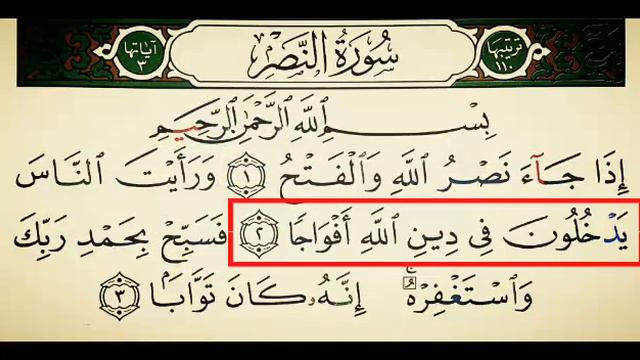 آيَاتُهَا ٣ سُورَةُ النَّصْرِ تَرْتِيبُهَا ١١٠
بِسْمِ اللَّهِ الرَّحْمَٰنِ الرَّحِيمِ
إِذَا جَآءَ نَصْرُ اللَّهِ وَالْفَتْحُ ١ وَرَأَيْتَ النَّاسَ
يَدْخُلُونَ فِي دِينِ اللَّهِ أَفْوَاجًا ٢ فَسَبِّحْ بِحَمْدِ رَبِّكَ
وَاسْتَغْفِرْهُ ۚ إِنَّهُۥ كَانَ تَوَّابًۢا ٣